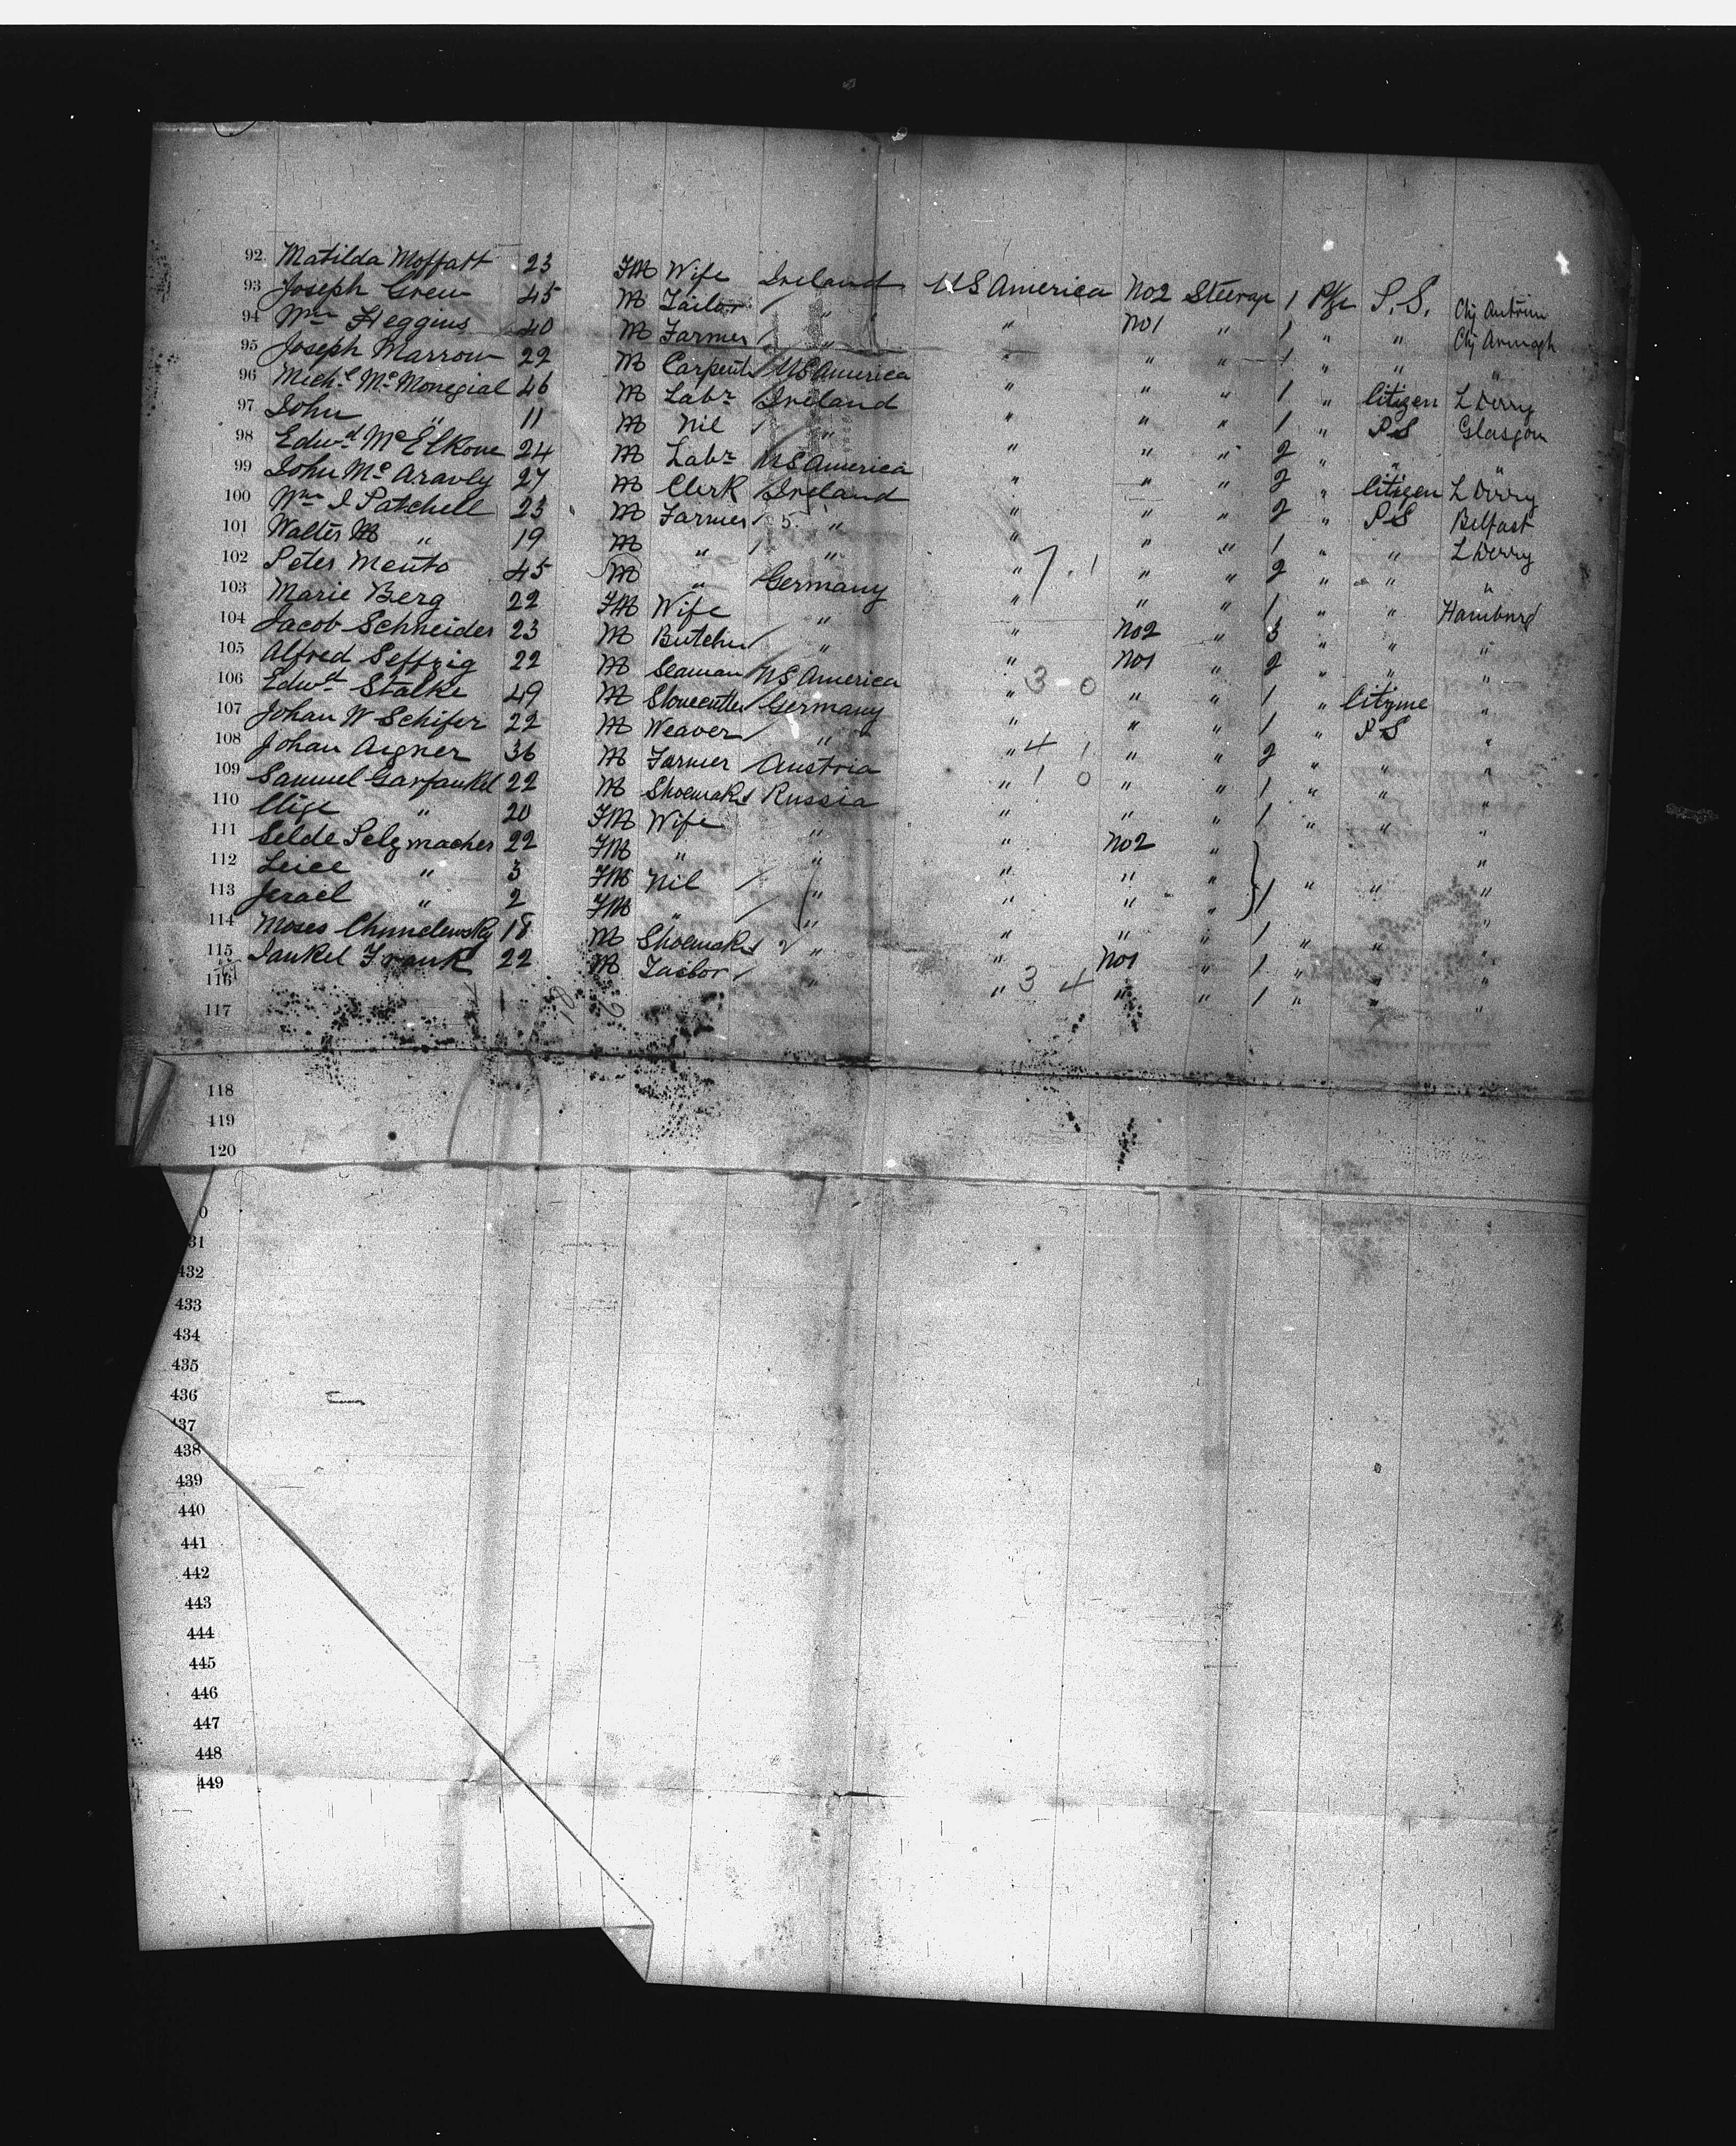 92 Matilda Moffatt 23 FM Wife Ireland US America No2 Steerage 1 Pkge P.S. Cty Antrim
93 Joseph Grew 45 M Tailor / " " No1 " 1 " " Cty Armagh
94 Wm Heggins 40 M Farmer / " " " " 1 " " "
95 Joseph Marrow 22 M Carpentr / US America " " " 1 " Citizen L Derry
96 Michl McMonegial 46 M Labr / Ireland " " " 1 " PS Glasgow
97 John " 11 M Nil / " " " " 2 " " "
98 Edwd McElkone 24 M Labr US America " " " 2 " Citizen L Derry
99 John McAravly 27 M Clerk / Ireland " " " 2 " PS Belfast
100 Wm I Patchell 23 M Farmer / 5 " " " " 1 " " L Derry
101 Walter M " 19 M " / " " 7.1 " " 2 " " "
102 Peter Mento 45 M " Germany " " " 1 " " Hamburg
103 Marie Berg 22 FM Wife " " No2 " 3 " " "
104 Jacob Schneider 23 M Butcher / " " No1 " 2 " " "
105 Alfred Seffzig 22 M Seaman / US America " 3-0 " " 1 " Citizne "
106 Edwd Stalke 49 M Stonecutter / Germany " " " 1 " PS "
107 Johan W Schifer 22 M Weaver / " " 4 1 " " 2 " " "
108 Johan Aigner 36 M Farmer Austria " 1 0 " " 1 " " "
109 Samuel Garfankel 22 M Shoemakr / Russia " " " 1 " " "
110 " 20 FM Wife " " No2 "
111 Selde Selzmacher 22 FM " " " " " "
112 Leiee " 3 FM Nil / " " " " 1 " " "
113 Jerael " 2 FM " / " " " " 1 " " "
114 Moses Chmelewsky 18 M Shoemakr 2 " " No1 " 1 " " "
115 Jankel Frank 22 M Tailor / " " 3 4 " " 1 " " "
116
117
118
119
120
0
31
432
433
434
435
436
437
438
439
440
441
442
443
444
445
446
447
448
449